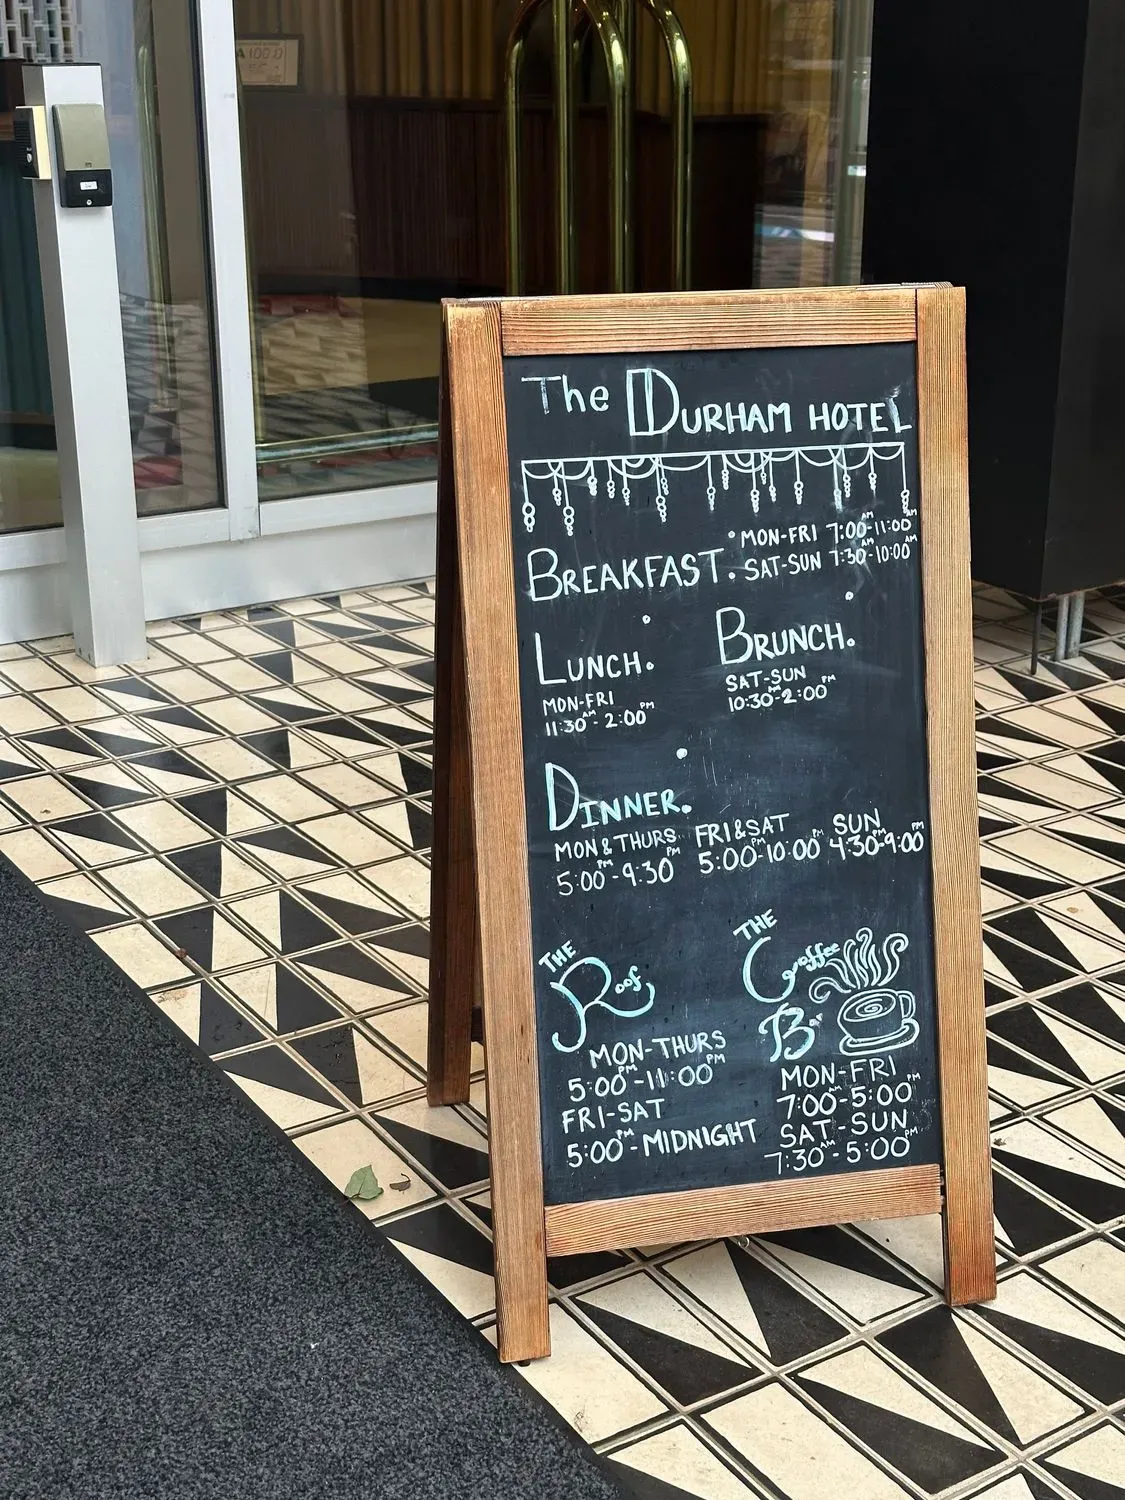 The DURHAM HOTEL
BREAKFAST.
MON-FRI 7:00AM-11:00AM
SAT-SUN 7:30AM-10:00AM
LUNCH.
MON-FRI
11:30AM-2:00PM
BRUNCH.
SAT-SUN
10:30AM-2:00PM
DINNER.
MON & THURS
5:00PM-9:30PM
FRI & SAT
5:00PM-10:00PM
SUN
4:30PM-9:00PM
THE
Roof
MON-THURS
5:00PM-11:00PM
FRI-SAT
5:00PM-MIDNIGHT
THE
Coffee
Bar
MON-FRI
7:00AM-5:00PM
SAT-SUN
7:30AM-5:00PM